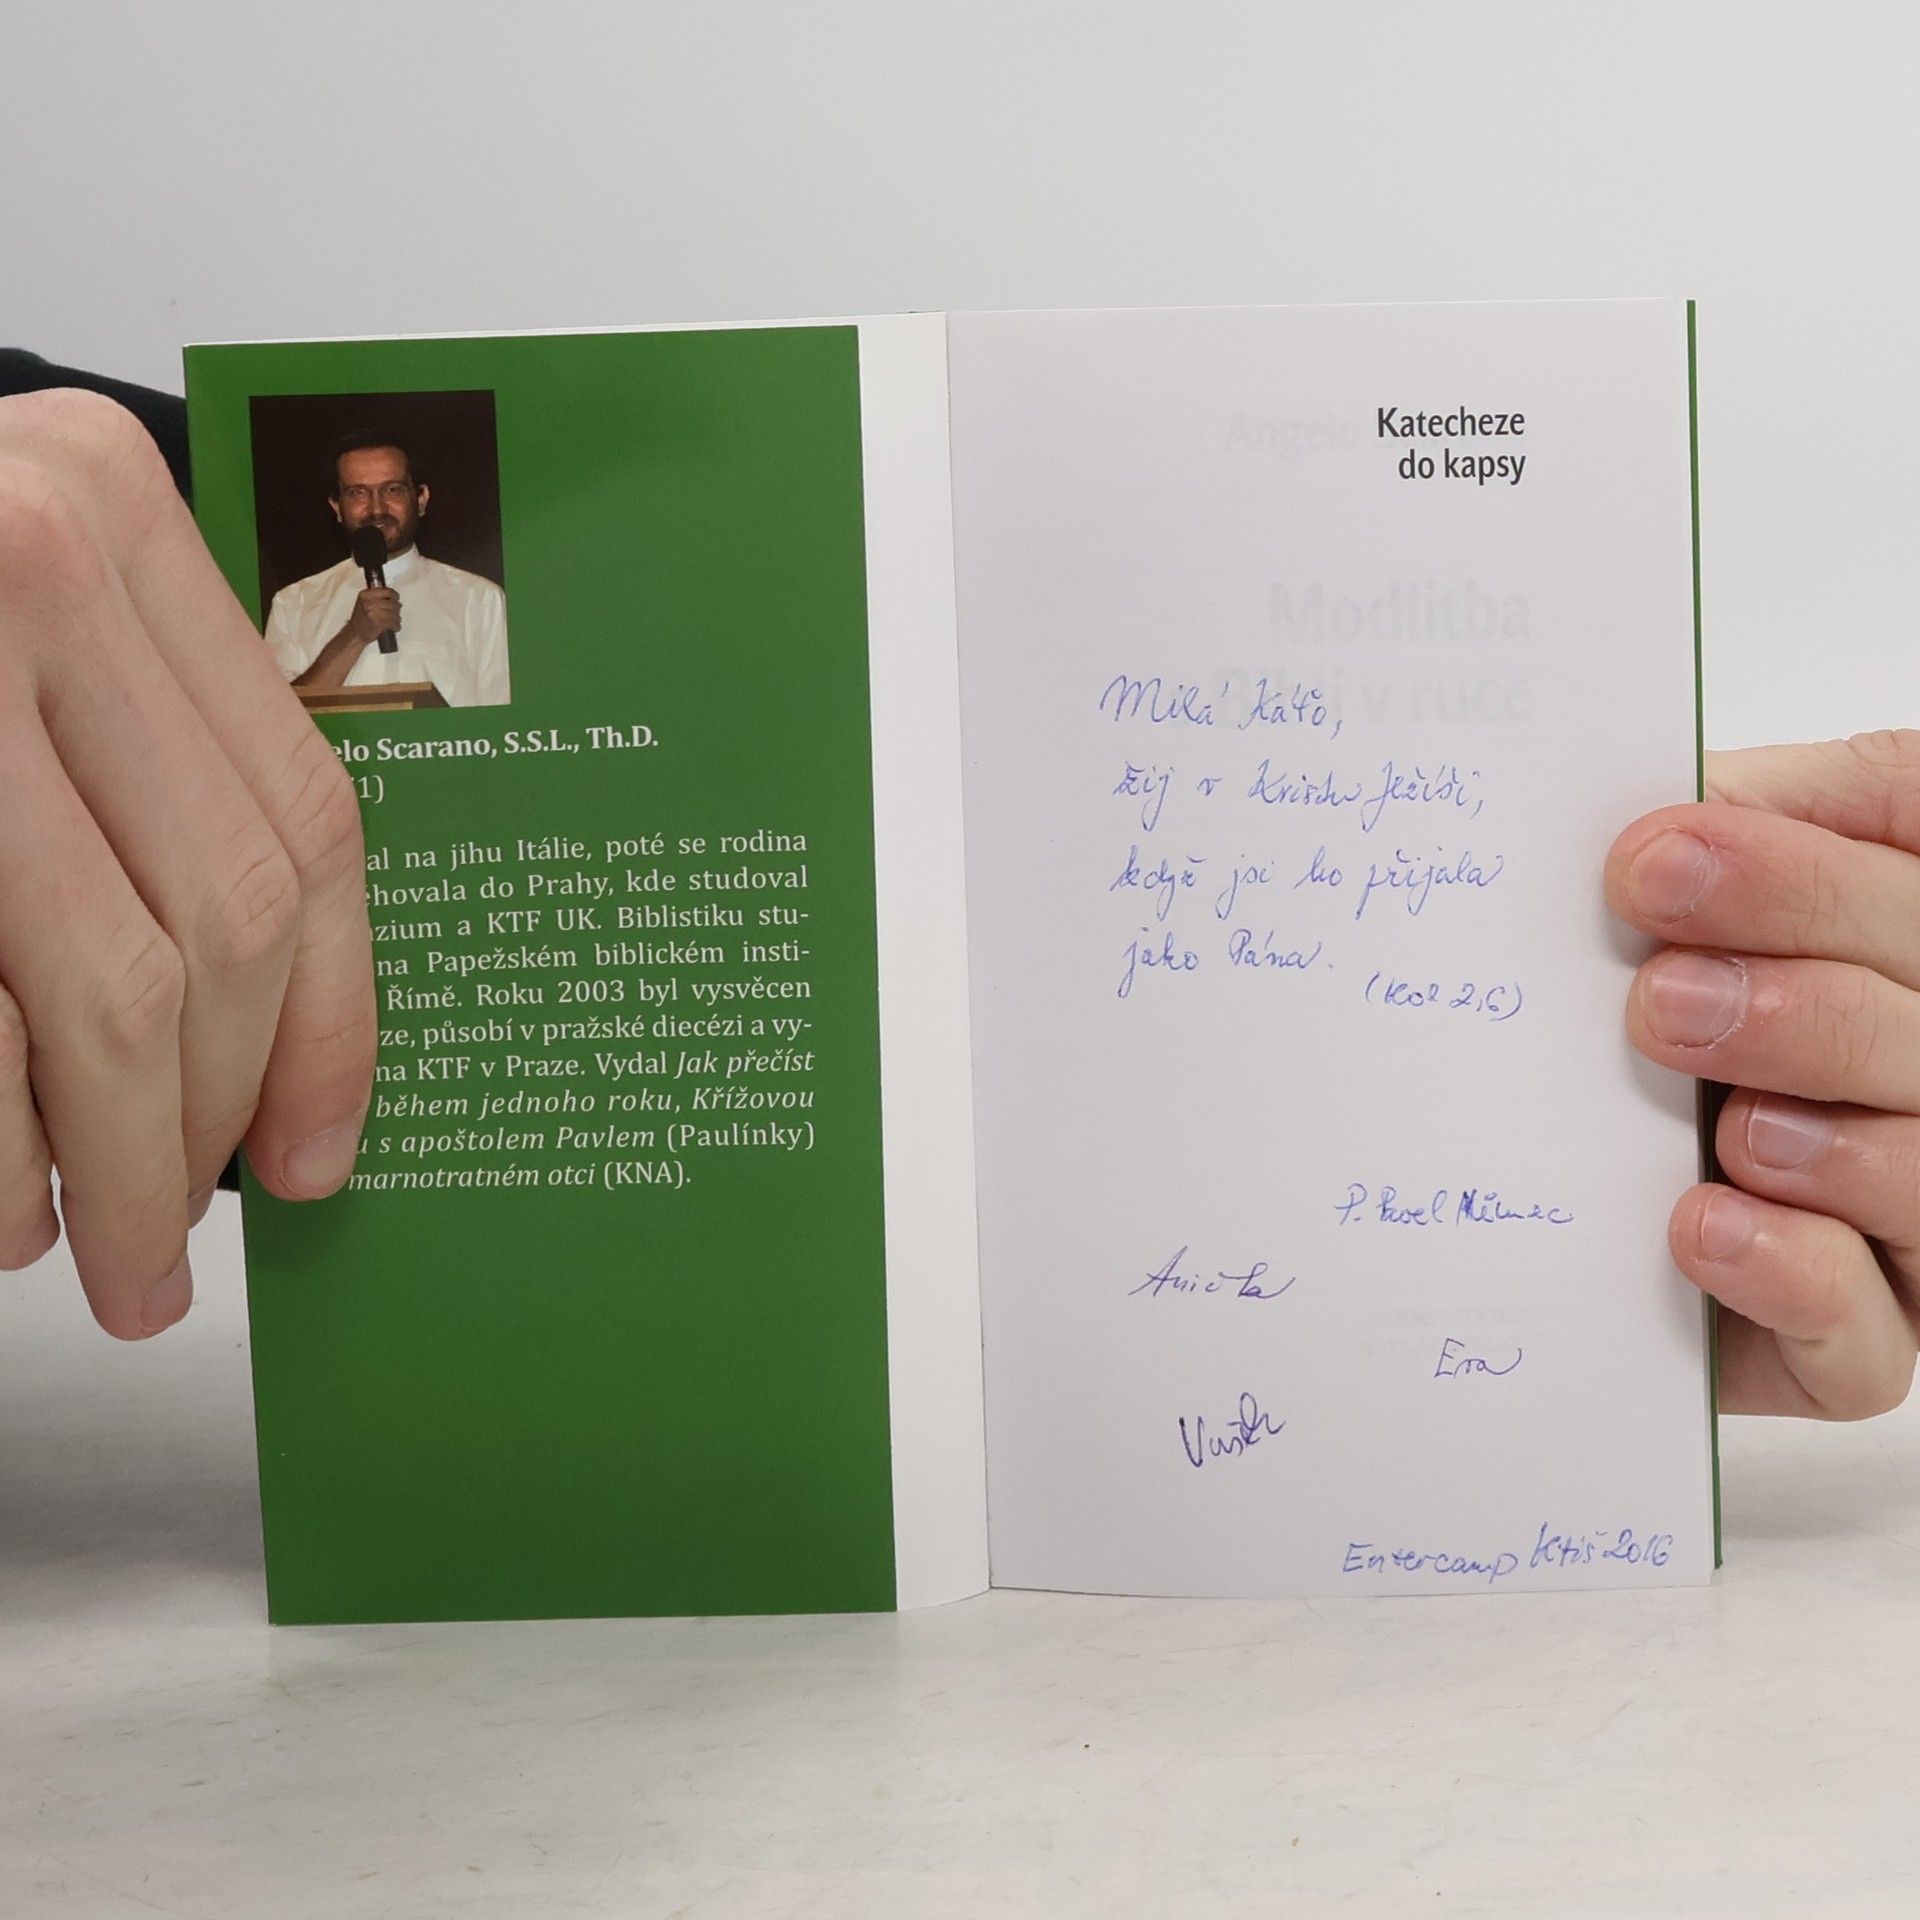 elo Scarano, S.S.L., Th.D.
1)
al na jihu Itálie, poté se rodina
ěhovala do Prahy, kde studoval
zium a KTF UK. Biblistiku stu-
na Papežském biblickém insti-
Římě. Roku 2003 byl vysvěcen
ze, působí v pražské diecézi a vy-
na KTF v Praze. Vydal Jak přečíst
během jednoho roku, Křížovou
u s apoštolem Pavlem (Paulínky)
marnotratném otci (KNA).
Katecheze
do kapsy
Angelo
Modlitba
s Biblí v ruce
Milá Káťo,
žij v Kristu Ježíši,
když jsi ho přijala
jako Pána.
(Kol 2,6)
P. Pavel Němec
Anička
Eva
Vašek
Entercamp Ktiš 2016